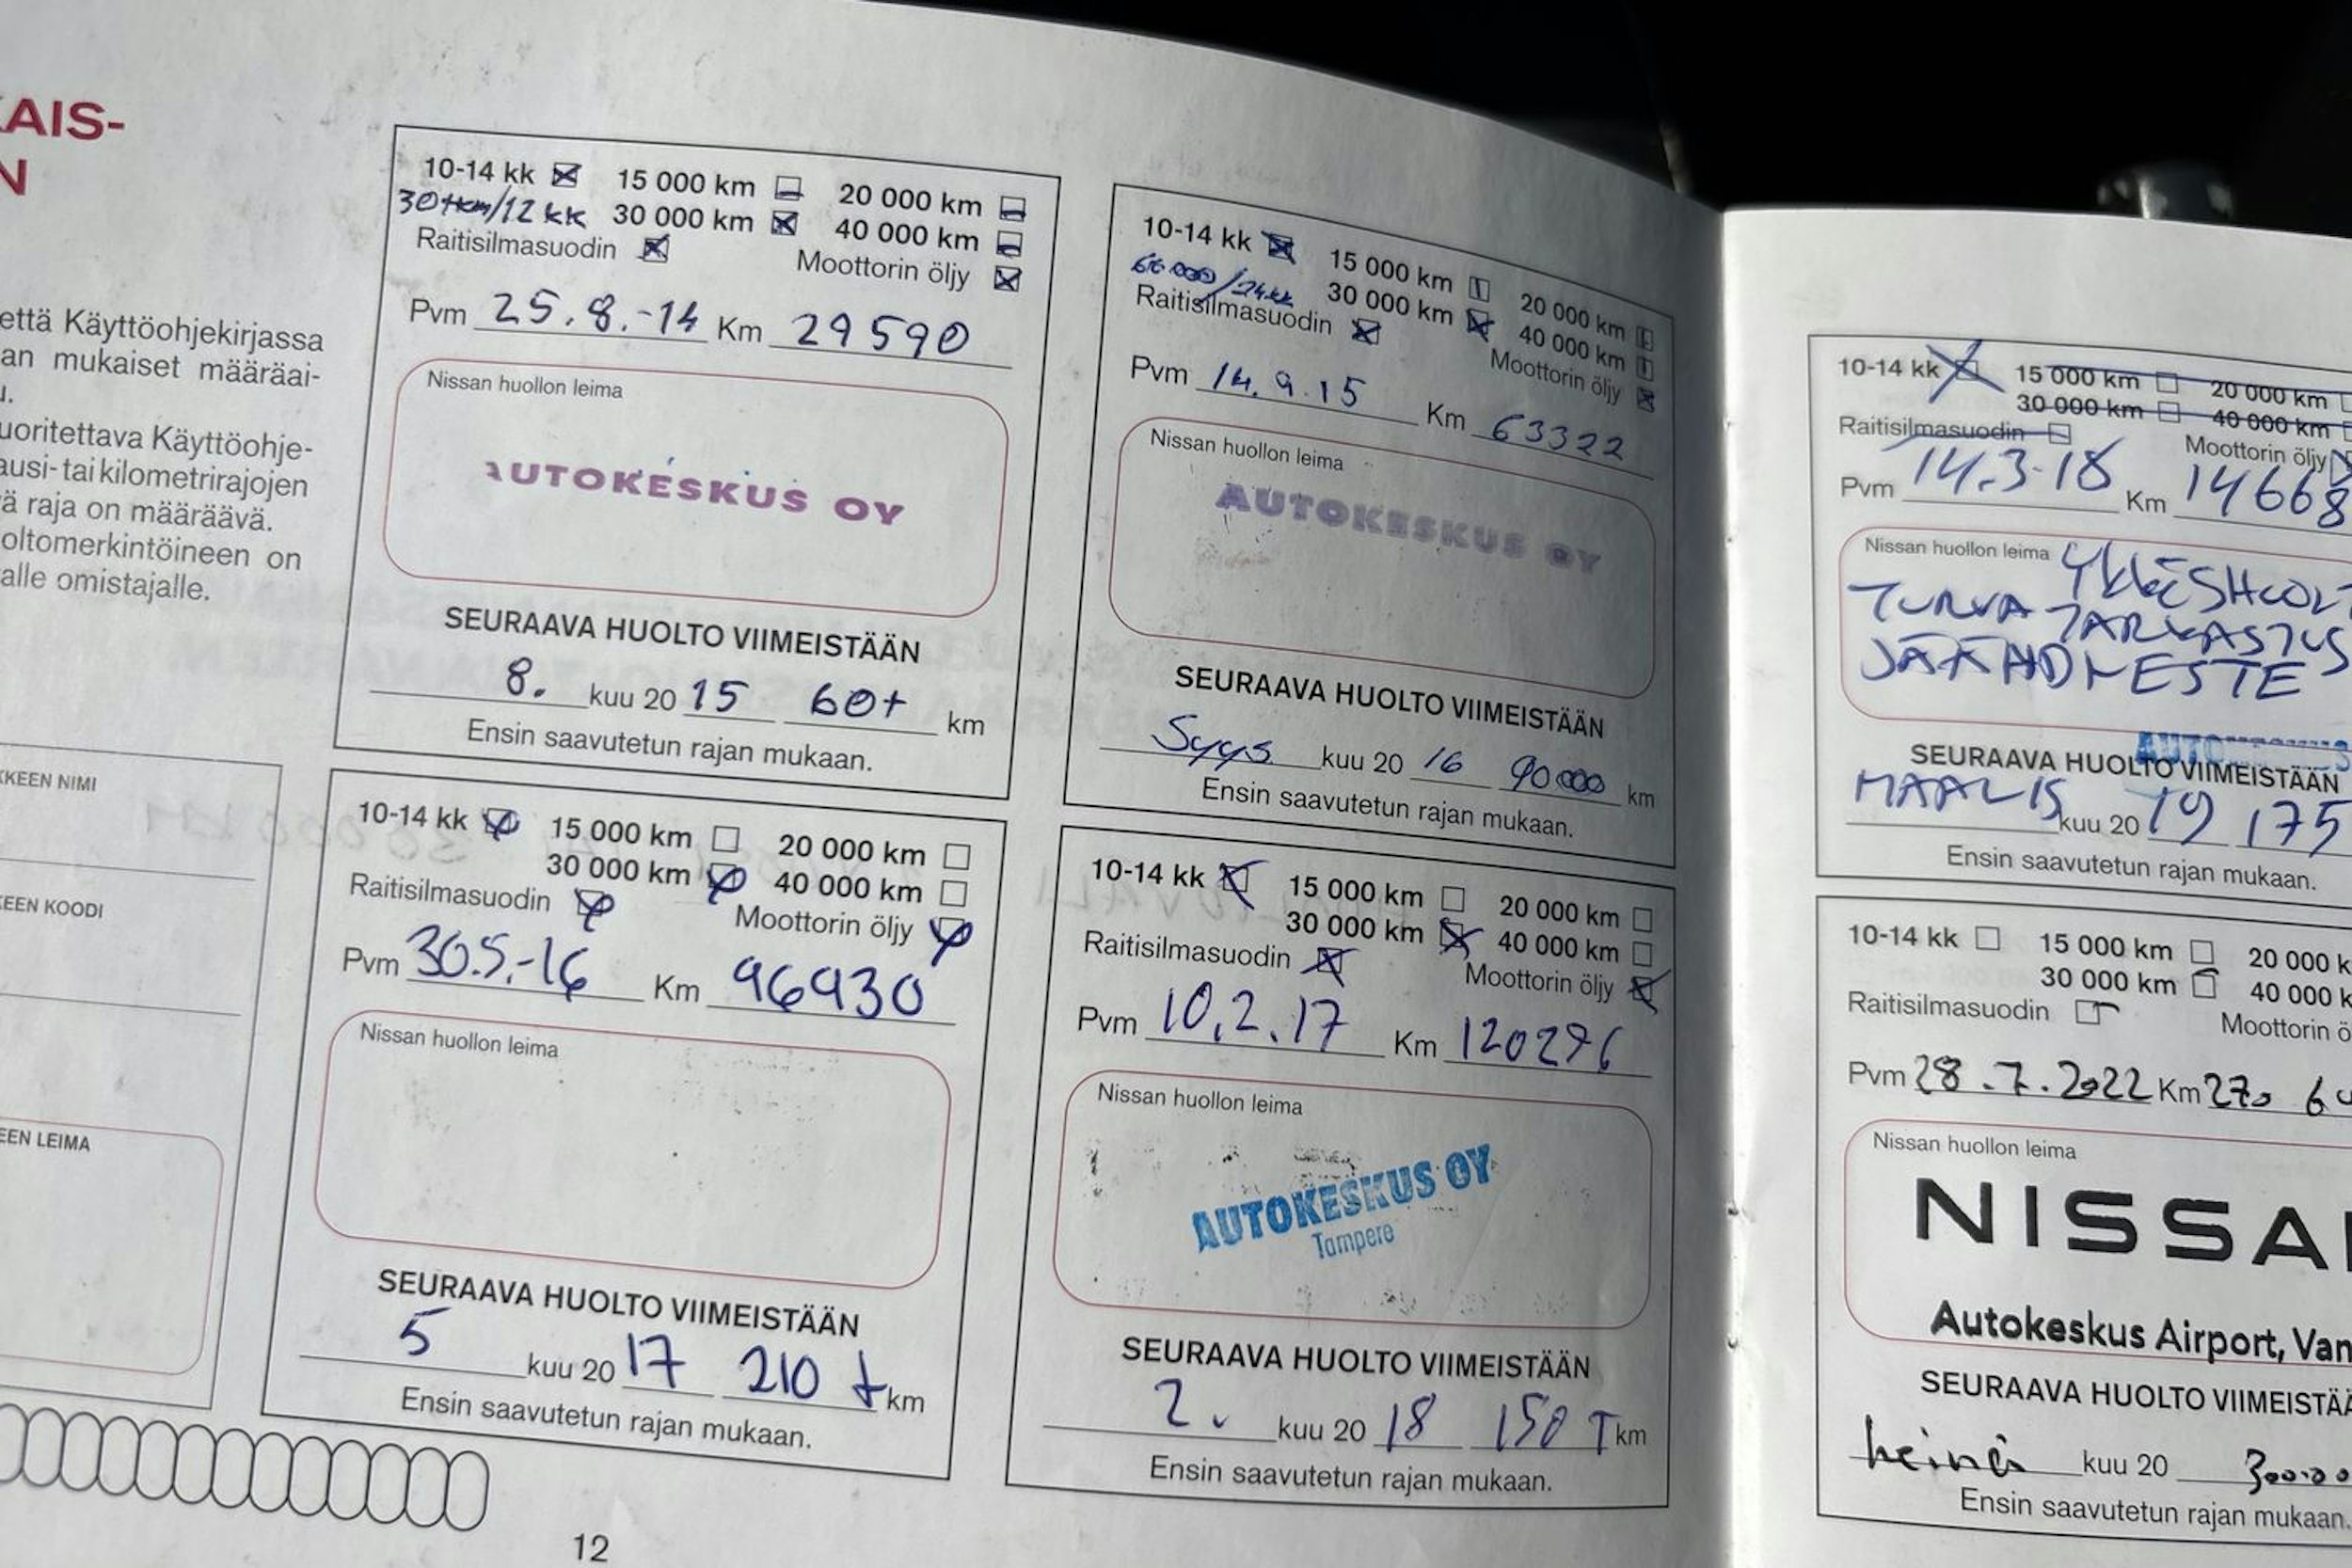 AIS-
N
että Käyttöohjekirjassa
an mukaiset määräai-
u.
uoritettava Käyttöohje-
ausi- tai kilometrirajojen
ä raja on määräävä.
oltomerkintöineen on
alle omistajalle.
KKEEN NIMI
KEEN KOODI
EEN LEIMA
10-14 kk 15 000 km 20 000 km
30tkm/12 kk 30 000 km 40 000 km
Raitisilmasuodin Moottorin öljy
Pvm 25.8.-14 Km 29590
Nissan huollon leima
AUTOKESKUS OY
SEURAAVA HUOLTO VIIMEISTÄÄN
8. kuu 20 15 60t km
Ensin saavutetun rajan mukaan.
10-14 kk 15 000 km 20 000 km
/24kk 30 000 km 40 000 km
Raitisilmasuodin Moottorin öljy
Pvm 14.9.15 Km 63322
Nissan huollon leima
AUTOKESKUS OY
SEURAAVA HUOLTO VIIMEISTÄÄN
Syys kuu 20 16 90000 km
Ensin saavutetun rajan mukaan.
10-14 kk 15 000 km 20 000 km
30 000 km 40 000 km
Raitisilmasuodin Moottorin öljy
Pvm 30.5.-16 Km 96930
Nissan huollon leima
SEURAAVA HUOLTO VIIMEISTÄÄN
5 kuu 20 17 210 t km
Ensin saavutetun rajan mukaan.
10-14 kk 15 000 km 20 000 km
30 000 km 40 000 km
Raitisilmasuodin Moottorin öljy
Pvm 10.2.17 Km 120296
Nissan huollon leima
AUTOKESKUS OY
Tampere
SEURAAVA HUOLTO VIIMEISTÄÄN
2. kuu 20 18 150 T km
Ensin saavutetun rajan mukaan.
12
10-14 kk 15 000 km 20 000 km
30 000 km 40 000 km
Raitisilmasuodin Moottorin öljy
Pvm 14.3-18 Km 14668
Nissan huollon leima
TURVATARKASTUS
JÄÄHDNESTE
AUTOKESKUS
SEURAAVA HUOLTO VIIMEISTÄÄN
MAALIS kuu 20 19 175
Ensin saavutetun rajan mukaan.
10-14 kk 15 000 km 20 000 k
30 000 km 40 000 k
Raitisilmasuodin Moottorin ö
Pvm 28.7.2022 Km 270 6
Nissan huollon leima
NISSA
Autokeskus Airport, Van
SEURAAVA HUOLTO VIIMEISTÄÄ
heinä kuu 20 300.00
Ensin saavutetun rajan mukaan.